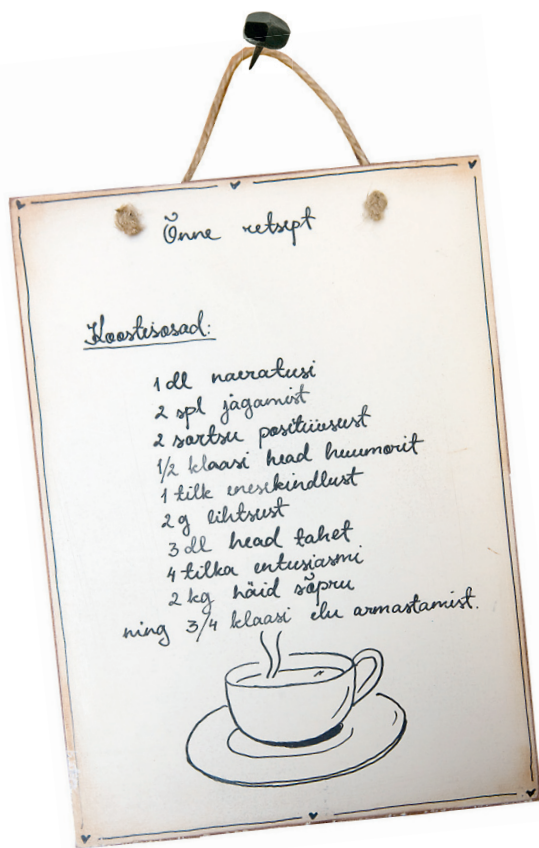 Õnne retsept
Koostisosad:
1 dl naeratusi
2 spl jagamist
2 sortsu positiivsust
1/2 klaasi head huumorit
1 tilk enesekindlust
2 g lihtsust
3 dl head tahet
4 tilka entusiasmi
2 kg häid sõpru
ning 3/4 klaasi elu armastamist.